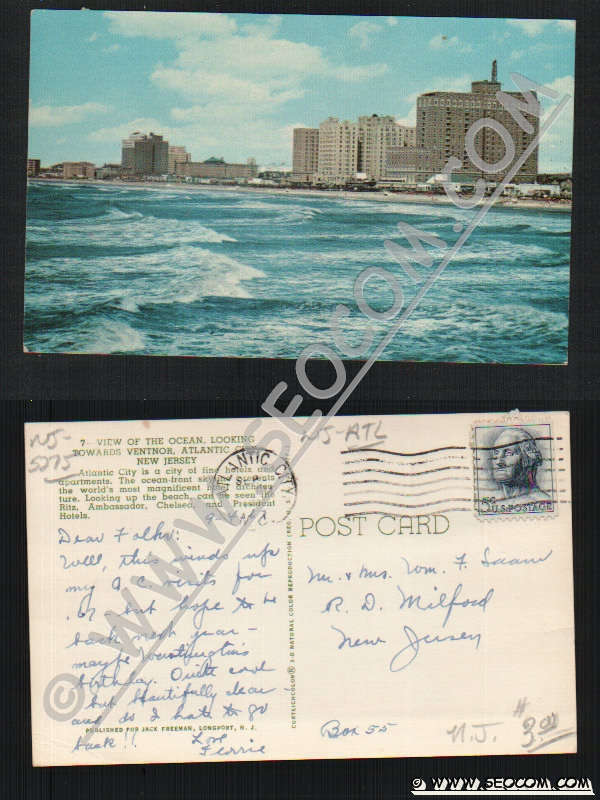 © WWW.SEOCOM.COM
NJ-
5275
NJ-ATL
7—VIEW OF THE OCEAN, LOOKING
TOWARDS VENTNOR, ATLANTIC
NEW JERSEY
Atlantic City is a city of fine hotels and
apartments. The ocean-front presents
the world's most magnificent hotel
ture. Looking up the beach, can be seen the
Ritz, Ambassador, Chelsea, and President
Hotels.
NTIC CITY
5¢ U.S. POSTAGE
POST CARD
Dear Folks:
Well, this winds up
my A.C. visits for
but hope to be
back next year—
maybe Washington's
birthday. Quite cool
but beautifully clear
and do I hate to go
back!! Love
Ferrie
PUBLISHED FOR JACK FREEMAN, LONGPORT, N. J.
CURTEICHCOLOR® 3-D NATURAL COLOR REPRODUCTION
Mr. & Mrs. Wm. F.
R. D. Milford
New Jersey
Box 55
N.J. #
© WWW.SEOCOM.COM